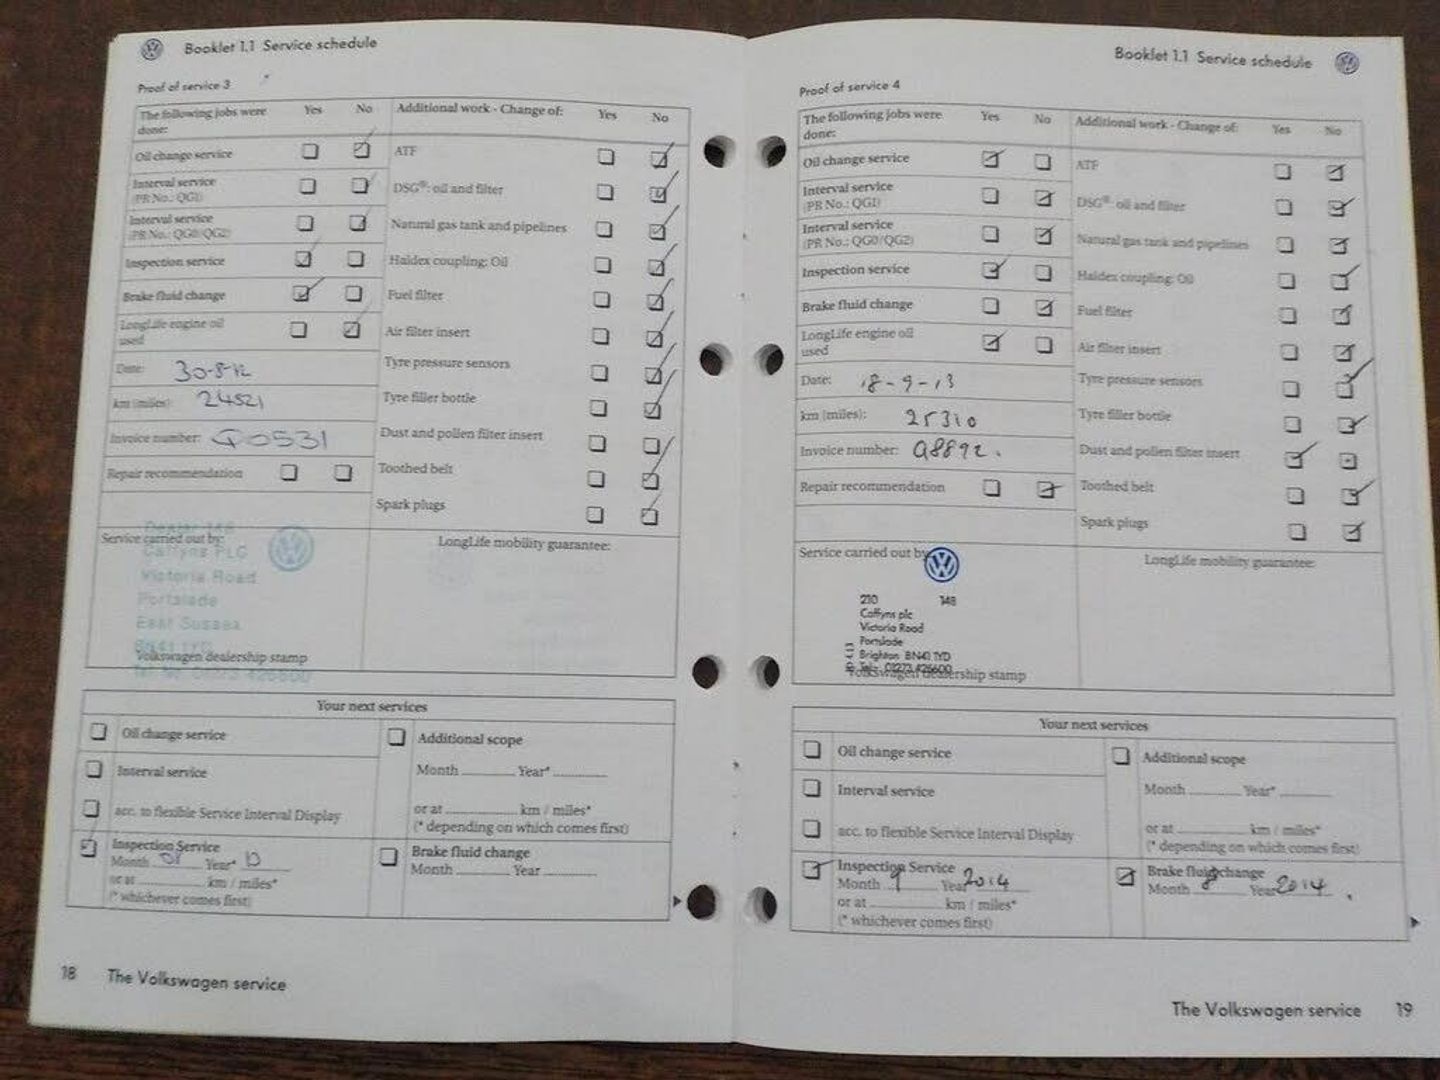 Booklet 1.1 Service schedule
Proof of service 3
The following jobs were done: Yes No
Additional work - Change of: Yes No
Oil change service
ATF
Interval service
(PR No.: QG1)
DSG®: oil and filter
Interval service
(PR No.: QG0/QG2)
Natural gas tank and pipelines
Inspection service
Haldex coupling: Oil
Brake fluid change
Fuel filter
LongLife engine oil
used
Air filter insert
Date: 30-8-12
Tyre pressure sensors
km (miles): 24521
Tyre filler bottle
Invoice number: Q0531
Dust and pollen filter insert
Repair recommendation
Toothed belt
Spark plugs
Service carried out by:
LongLife mobility guarantee:
Caffyns PLC
Victoria Road
Portslade
East Sussex
Volkswagen dealership stamp
Your next services
Oil change service
Additional scope
Interval service
Month Year*
acc. to flexible Service Interval Display
or at km / miles*
(* depending on which comes first)
Inspection Service
Month Year*
or at km / miles*
(* whichever comes first)
Brake fluid change
Month Year
18 The Volkswagen service
Booklet 1.1 Service schedule
Proof of service 4
The following jobs were done: Yes No
Additional work - Change of: Yes No
Oil change service
ATF
Interval service
(PR No.: QG1)
DSG®: oil and filter
Interval service
(PR No.: QG0/QG2)
Natural gas tank and pipelines
Inspection service
Haldex coupling: Oil
Brake fluid change
Fuel filter
LongLife engine oil
used
Air filter insert
Date: 18-9-13
Tyre pressure sensors
km (miles): 25310
Tyre filler bottle
Invoice number: Q8892.
Dust and pollen filter insert
Repair recommendation
Toothed belt
Spark plugs
Service carried out by
LongLife mobility guarantee:
210 148
Caffyns plc
Victoria Road
Portslade
Brighton BN41 1YD
Tel: 01273 425600
Volkswagen dealership stamp
Your next services
Oil change service
Additional scope
Interval service
Month Year*
acc. to flexible Service Interval Display
or at km / miles*
(* depending on which comes first)
Inspection Service
Month 9 Year 2014
or at km / miles*
(* whichever comes first)
Brake fluid change
Month 8 Year 2014
The Volkswagen service 19